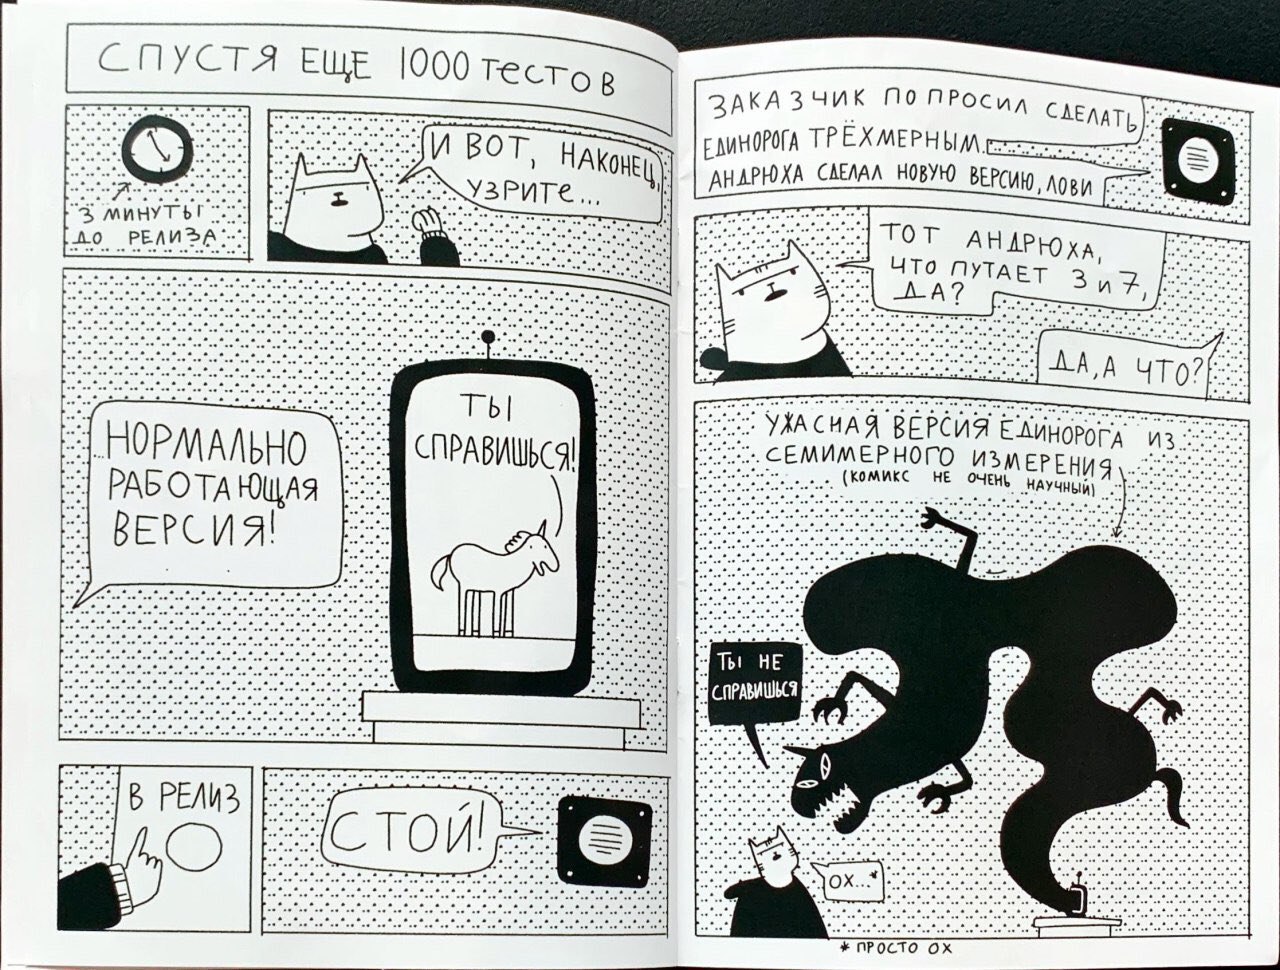 СПУСТЯ ЕЩЕ 1000 ТЕСТОВ
3 МИНУТЫ
ДО РЕЛИЗА
И ВОТ, НАКОНЕЦ,
УЗРИТЕ...
НОРМАЛЬНО
РАБОТАЮЩАЯ
ВЕРСИЯ!
ТЫ
СПРАВИШЬСЯ!
В РЕЛИЗ
СТОЙ!
ЗАКАЗЧИК ПОПРОСИЛ СДЕЛАТЬ
ЕДИНОРОГА ТРЁХМЕРНЫМ.
АНДРЮХА СДЕЛАЛ НОВУЮ ВЕРСИЮ, ЛОВИ
ТОТ АНДРЮХА,
ЧТО ПУТАЕТ 3 И 7,
ДА?
ДА, А ЧТО?
УЖАСНАЯ ВЕРСИЯ ЕДИНОРОГА ИЗ
СЕМИМЕРНОГО ИЗМЕРЕНИЯ
(КОМИКС НЕ ОЧЕНЬ НАУЧНЫЙ)
ТЫ НЕ
СПРАВИШЬСЯ
ОХ...*
* ПРОСТО ОХ